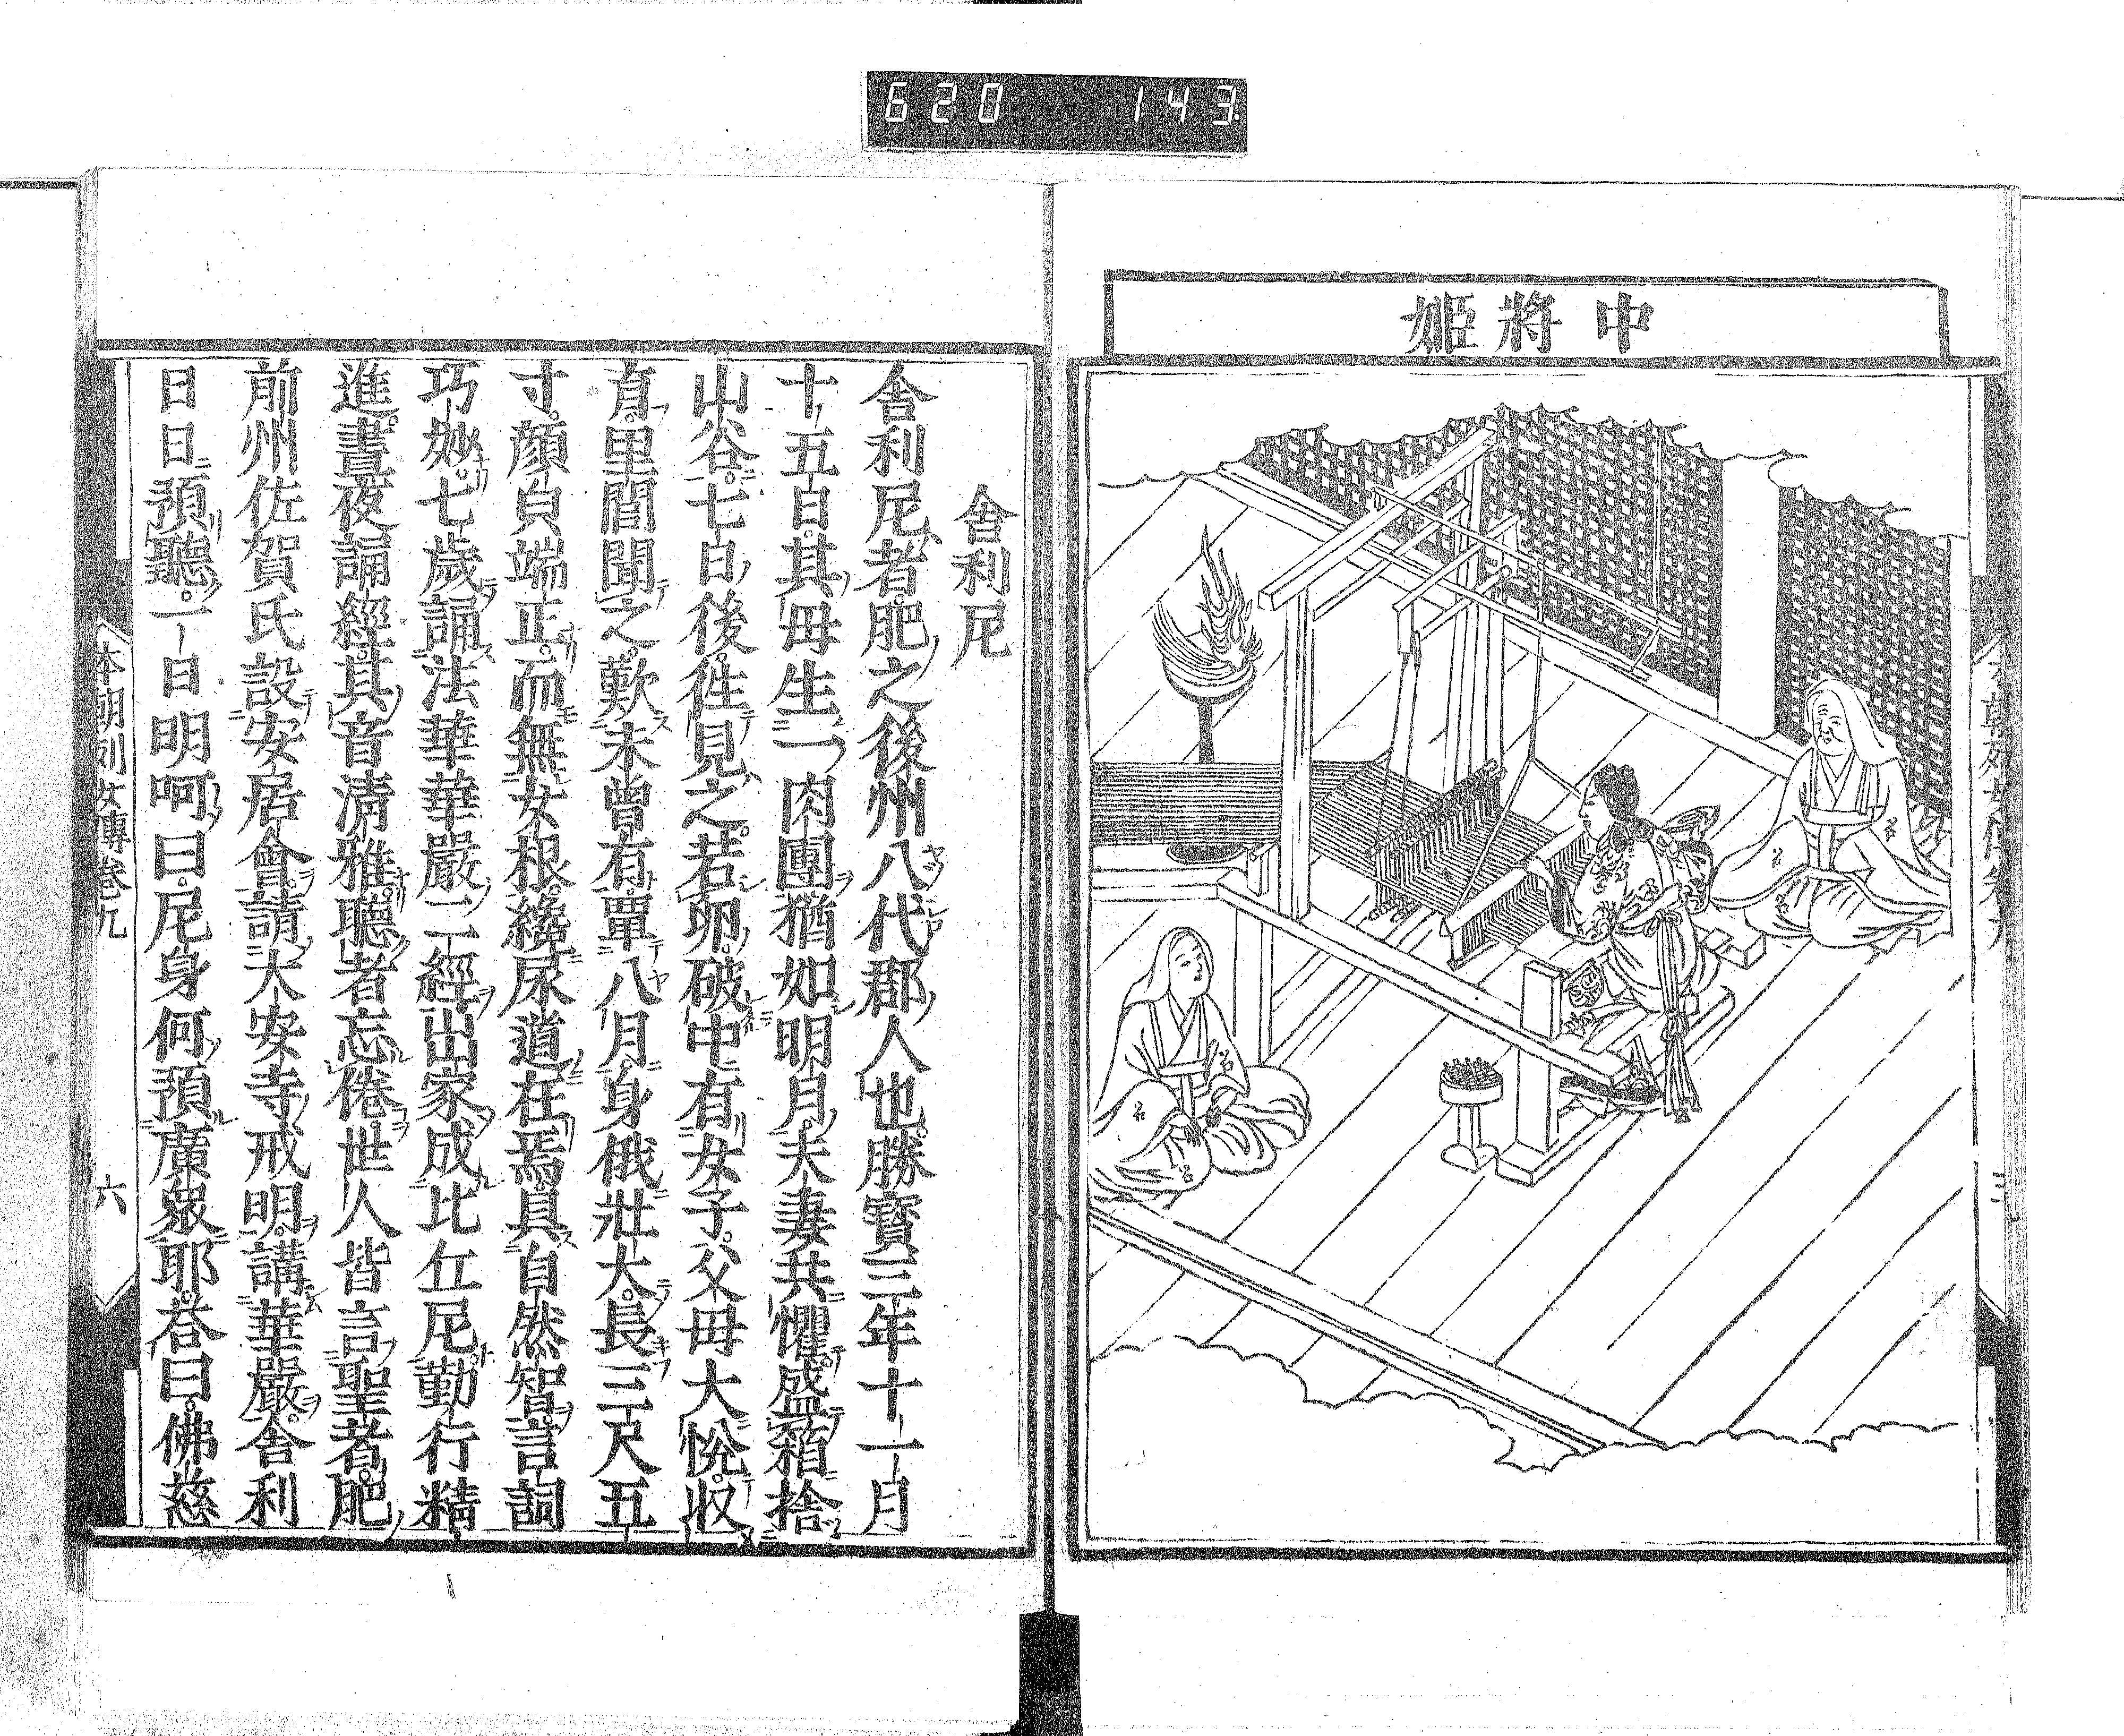 620 143
中將姬
舎利尼
舎利尼者肥之後州八代郡人也勝寳三年十一月
十五日其毋生一肉團猶如明月夫妻共懼盛箱捨
山谷七日後徃見之若卵破中有女子父毋大悅收
育里閭聞之歎未曾有覃八月身俄壯大長三尺五
寸顔皃端正而無女根纔尿道在焉具自然智言詞
巧妙七歲誦法華華嚴二經出家成比丘尼勤行精
進晝夜誦經其音淸雅聽者忘倦世人皆言聖者肥
前州佐賀氏設安居會請大安寺戒明講華嚴舎利
日日預聽一日明呵曰尼身何預廣衆耶荅曰佛慈
本朝列女傳卷九
六